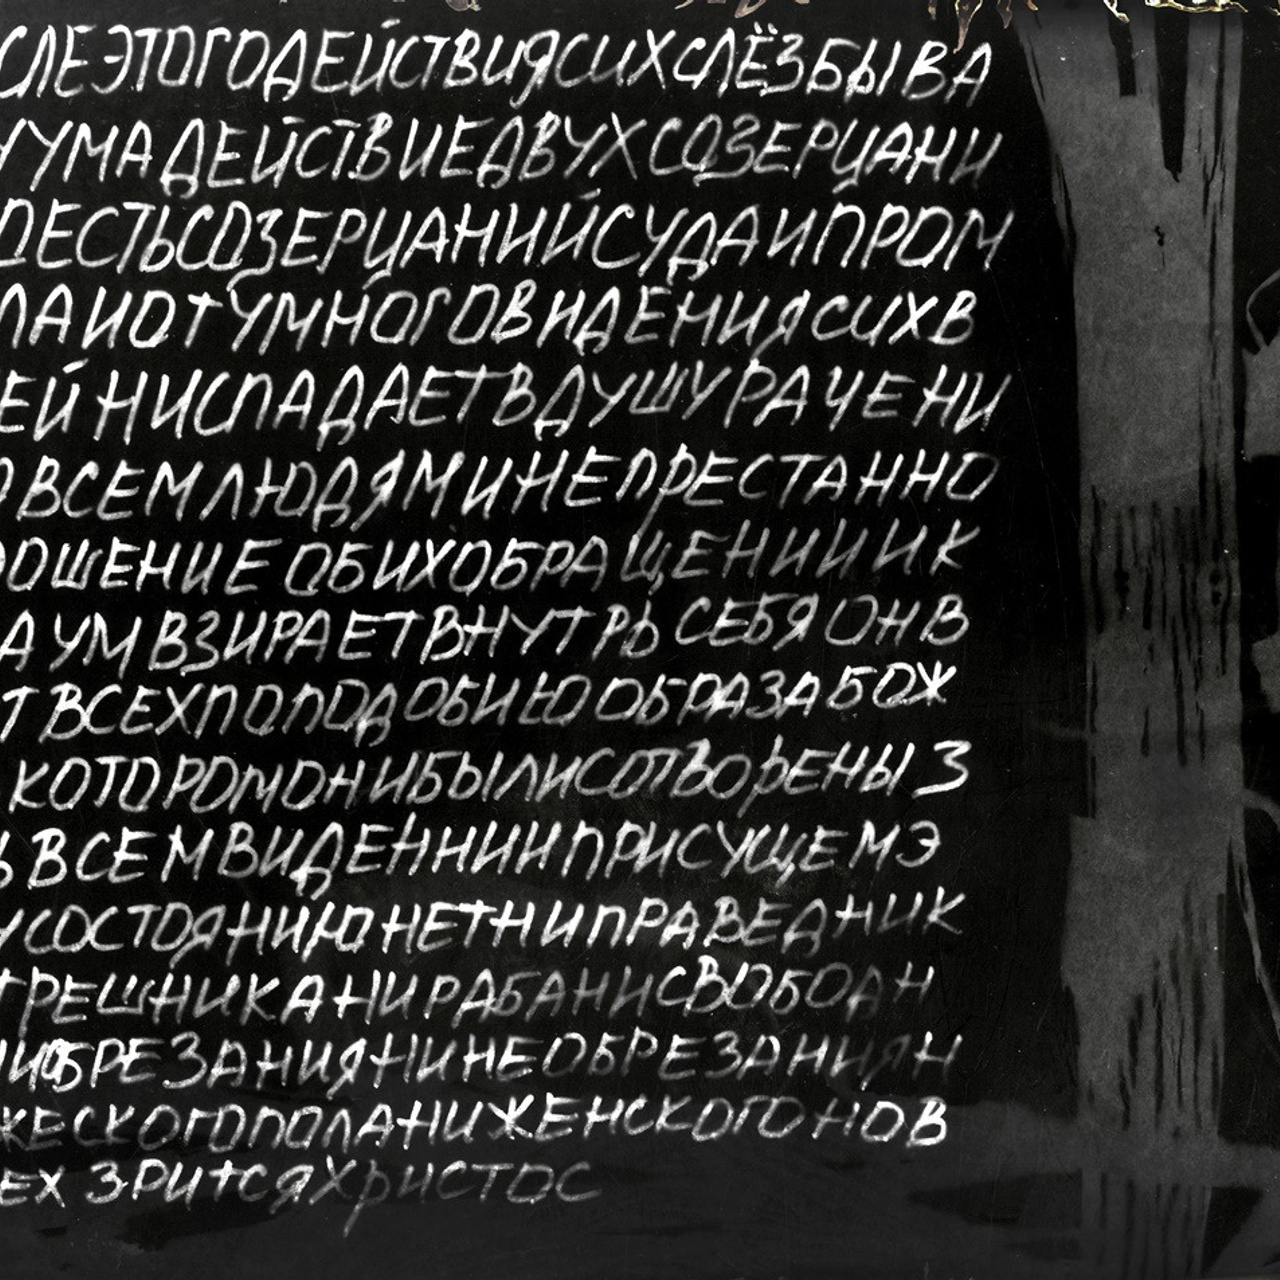 СЛЕЭТОГОДЕЙСТВИЯСИХСЛЁЗБЫВА
УУМАДЕЙСТВИЕДВУХСОЗЕРЦАНИ
ОЕСТЬСОЗЕРЦАНИЙСУДАИПРОМ
ЛАИОТУМНОГОВИДЕНИЯСИХВ
ЕЙНИСПАДАЕТВДУШУРАЧЕНИ
ОВСЕМЛЮДЯМИНЕПРЕСТАННО
ОШЕНИЕОБИХОБРАЩЕНИИИК
АУМВЗИРАЕТВНУТРЬСЕБЯОНВ
ТВСЕХПОПОДОБИЮОБРАЗАБОЖ
КОТОРОМОНИБЫЛИСОТВОРЕНЫЗ
ЬВСЕМВИДЕННИИПРИСУЩЕМЭ
УСОСТОЯНИЮНЕТНИПРАВЕДНИК
ГРЕШНИКАНИРАБАНИСВОБОДН
ИОБРЕЗАНИЯНИНЕОБРЕЗАНИЯН
ЖЕСКОГОПОЛАНИЖЕНСКОГОНОВ
ЕХ ЗРИТСЯХРИСТОС